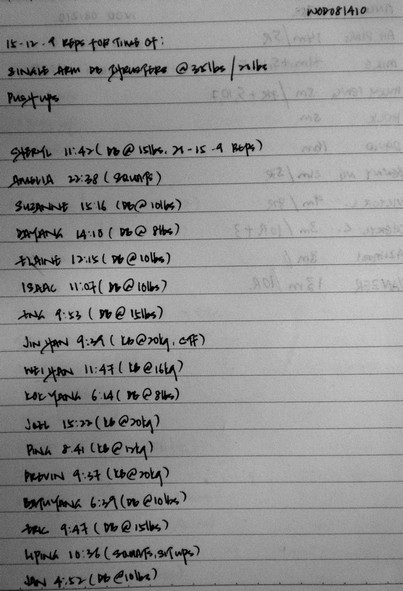 WOD081410
15-12-9 REPS FOR TIME OF:
SINGLE ARM DB THRUSTERS @ 35lbs/20lbs
PUSHUPS
SHERYL 11:42 (DB @ 15lbs, 21-15-9 REPS)
AMELIA 22:38 (SQUATS)
SUZANNE 15:16 (DB @ 10lbs)
DAYANG 14:10 (DB @ 8lbs)
ELAINE 12:15 (DB @ 10lbs)
ISAAC 11:07 (DB @ 10lbs)
ENG 9:53 (DB @ 15lbs)
JINYAN 9:39 (KB @ 20kg, CFF)
WEIYHAN 11:47 (KB @ 16kg)
KOKYANG 6:14 (DB @ 8lbs)
JOEL 15:22 (KB @ 20kg)
PING 8:41 (KB @ 12kg)
PREVIN 9:37 (KB @ 20kg)
6:39 (DB @ 10lbs)
ERIC 9:47 (DB @ 15lbs)
LIPING 10:36 (SQUATS, SITUPS)
JAN 4:52 (DB @ 10lbs)